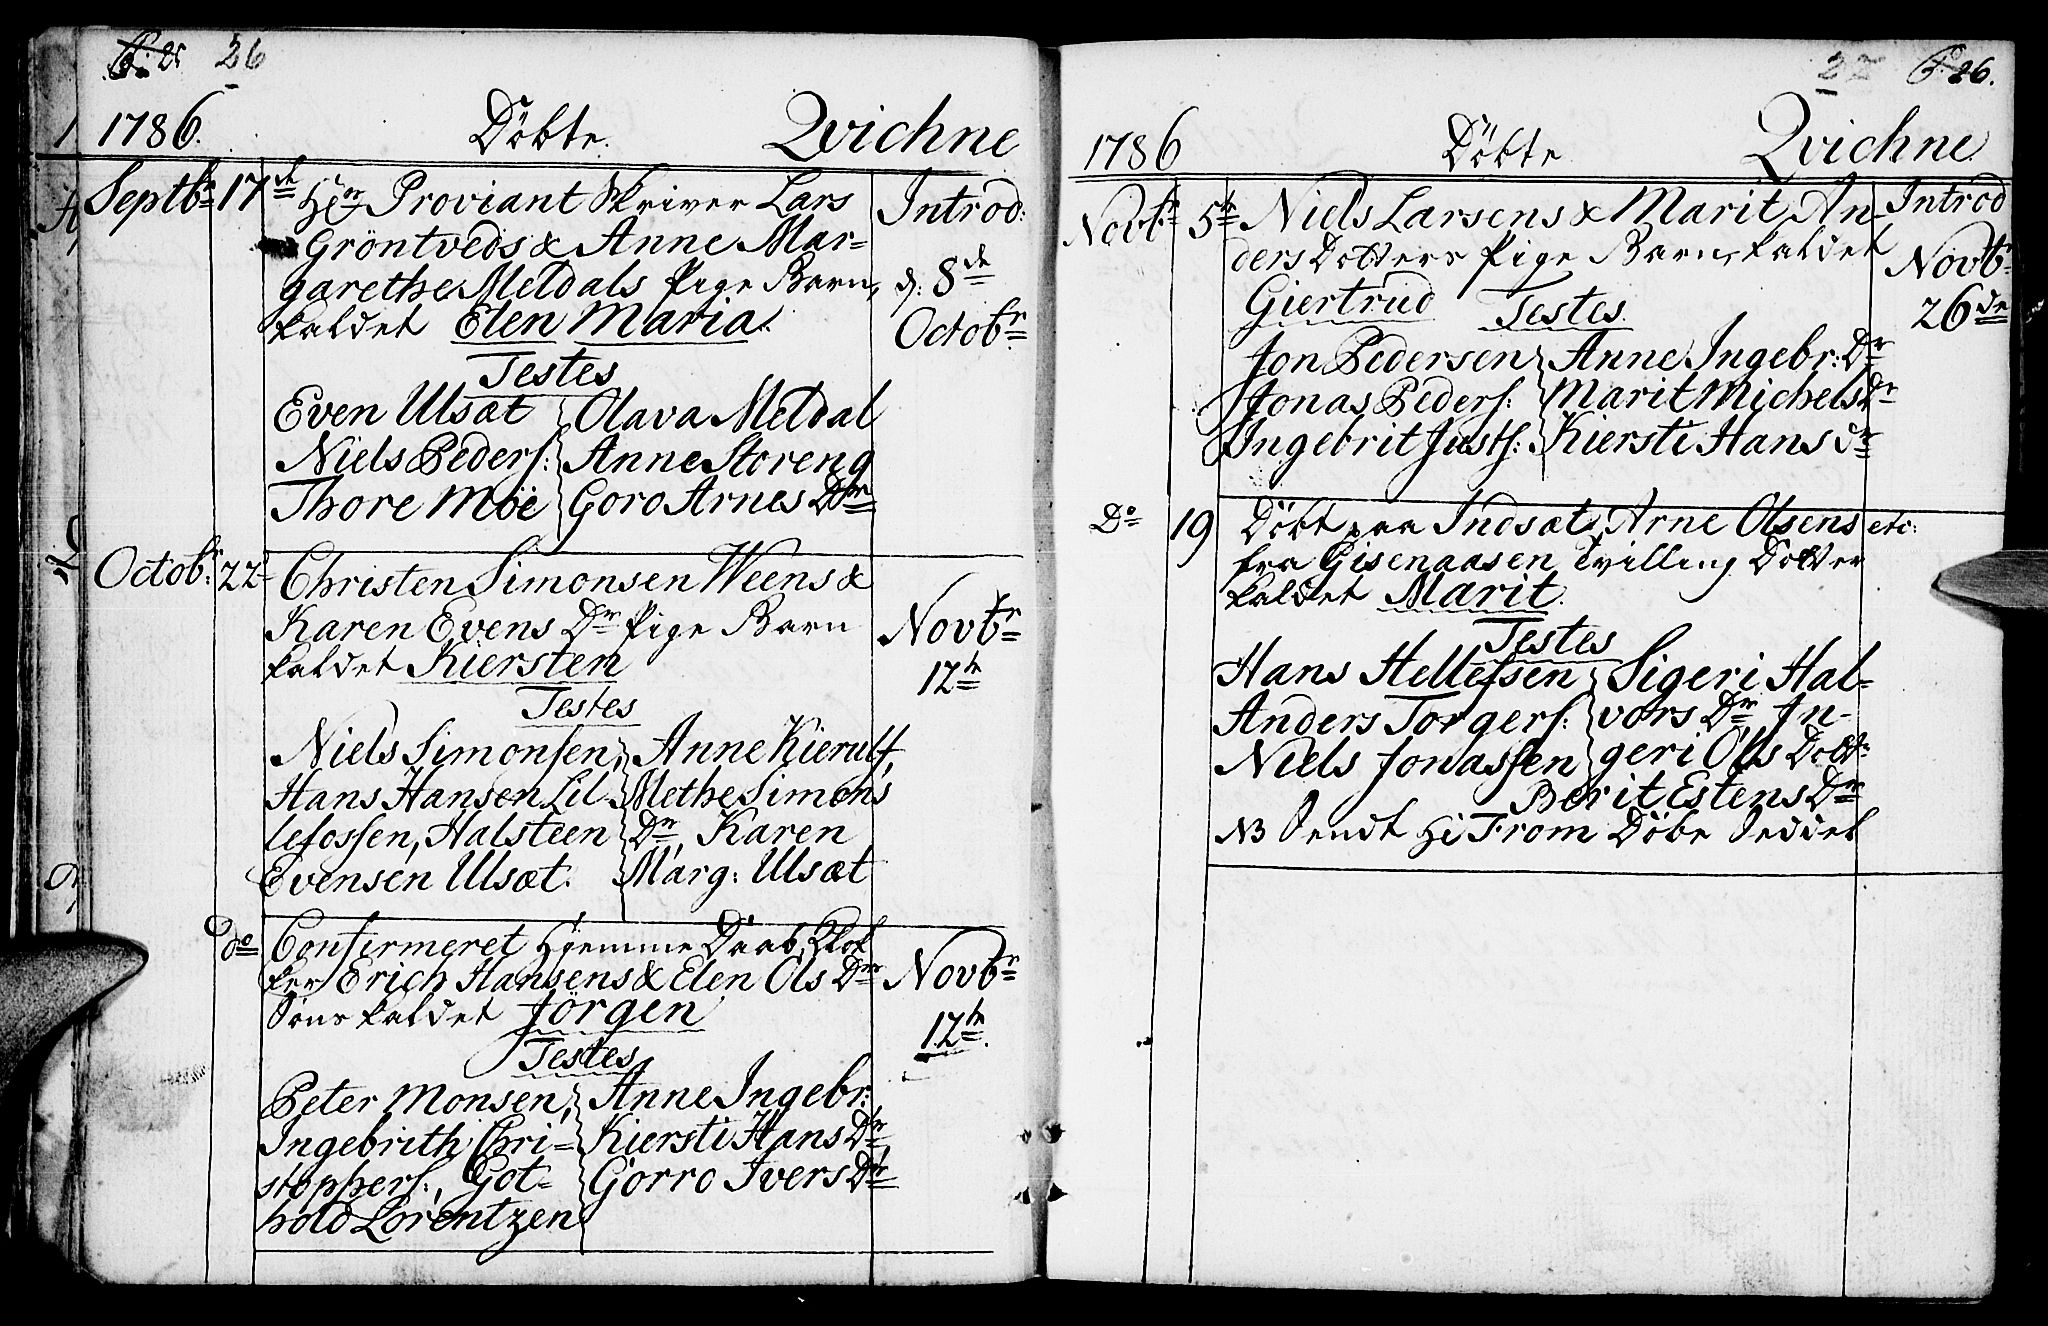 26
1786. Döbte. Qvichne
Septbr 17de Hr Proviant Skriver Lars
Gröntveds & Anne Mar=
garethe Meldals Pige Barn,
kaldet Elen Maria.
Introd:
d: 8de
Octobr
Testes
Even Ulsæt
Niels Peders:
Thore Möe
Olava Meldal
Anne Storeng
Goro Arnes Dtr
Octobr: 22 Christen Simonsen Weens &
Karen Evens Dr Pige Barn
kaldet Kiersten
Novbr
12te
Testes
Niels Simonsen,
Hans Hansen Lil-
lefossen, Halsteen
Evensen Ulsæt.
Anne Kierulf,
Methe Simons
Dr, Karen
Marg: Ulsæt
do Confirmeret Hjemme Daab, Klok
ker Erich Hansens & Elen Ols Dr
Söns kaldet Jörgen
Novbr
12te.
Testes
Peter Monsen,
Ingebrith Chri=
stophers:, Got=
hold Lorentzen
Anne Ingebr:
Kiersti Hans Dr
Gorro Ivers Dr
27 P. 26.
1786 Döbte Qvichne
Novbr 5te Niels Larsens & Marit An-
ders Dotters Pige Barn, kaldet
Giertrud
Introd
Novbr
26de
Testes.
Jon Pedersen
Jonas Peders:
Ingebrit Justs:
Anne Ingebr: Dr
Marit Michels Dr
Kiersti Hans dr
Do 19 Döbt paa Indsæt, Arne Olsens etc:
fra Gisenaasen Tvilling Dotter
kaldet Marit.
Testes
Hans Hellefsen
Anders Torgers:
Niels Jonassen
Sigeri Hal=
vors Dr In-
geri Olls Dottr
Berit Estens Dr
NB Sendt Hr From Döbe Seddel